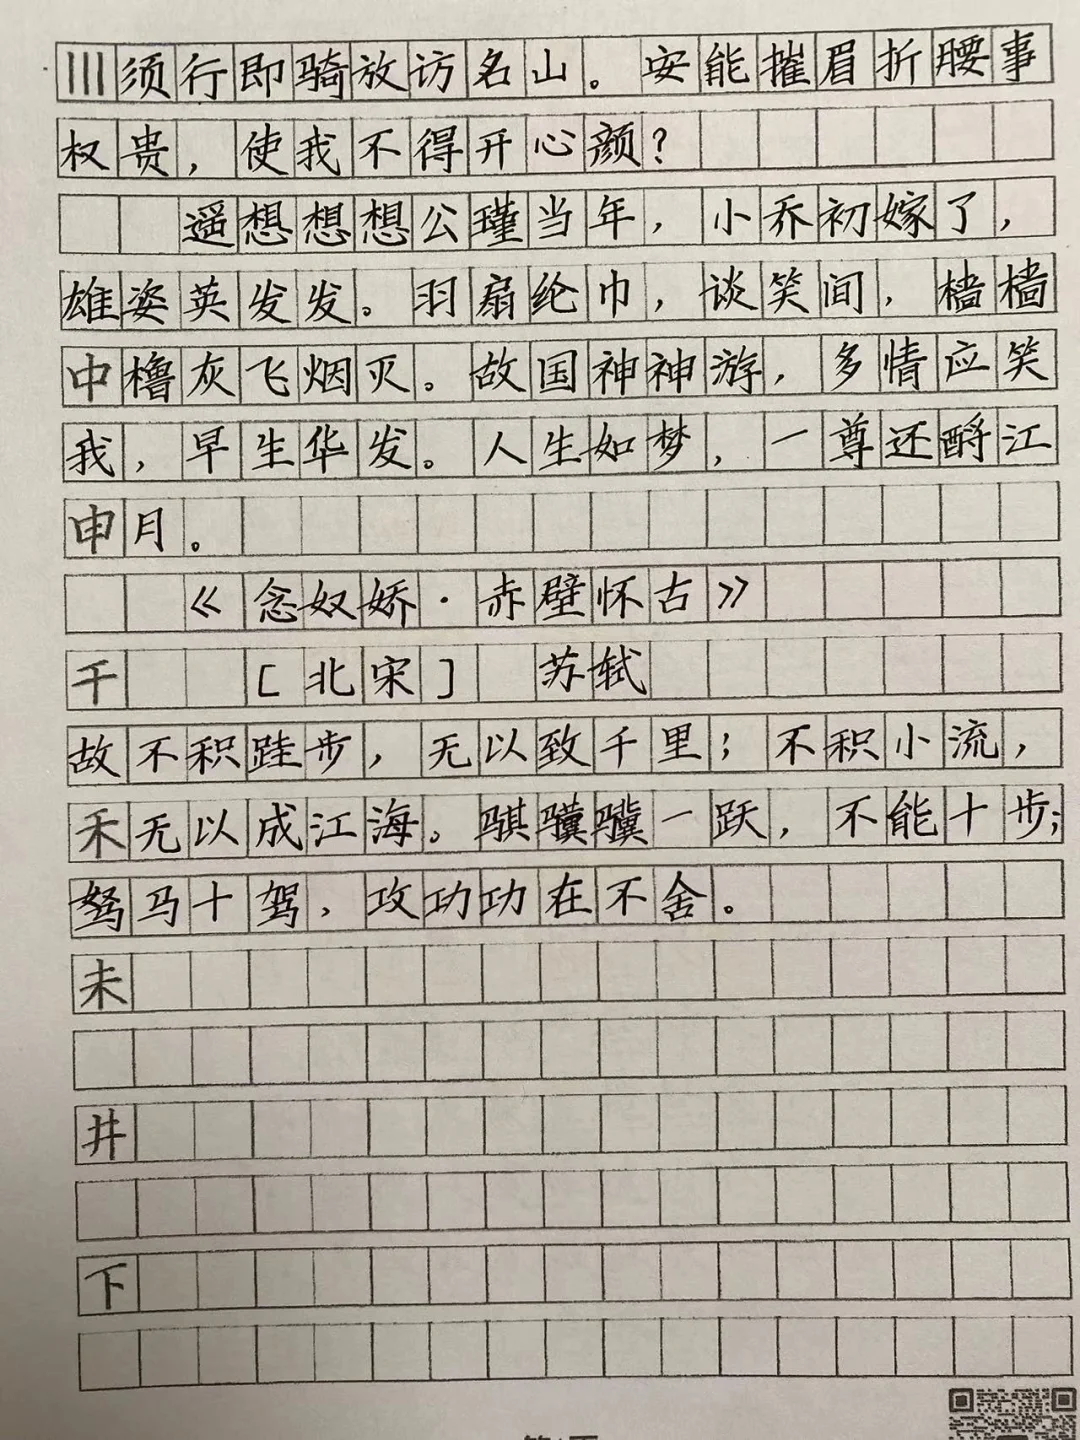 川须行即骑放访名山。安能摧眉折腰事
权贵，使我不得开心颜？
遥想想想公瑾当年，小乔初嫁了，
雄姿英发发。羽扇纶巾，谈笑间，樯樯
中橹灰飞烟灭。故国神神游，多情应笑
我，早生华发。人生如梦，一尊还酹江
申月。
《念奴娇·赤壁怀古》
千 [北宋] 苏轼
故不积跬步，无以致千里；不积小流，
禾无以成江海。骐骥骥一跃，不能十步；
驽马十驾，攻功功在不舍。
未
井
下